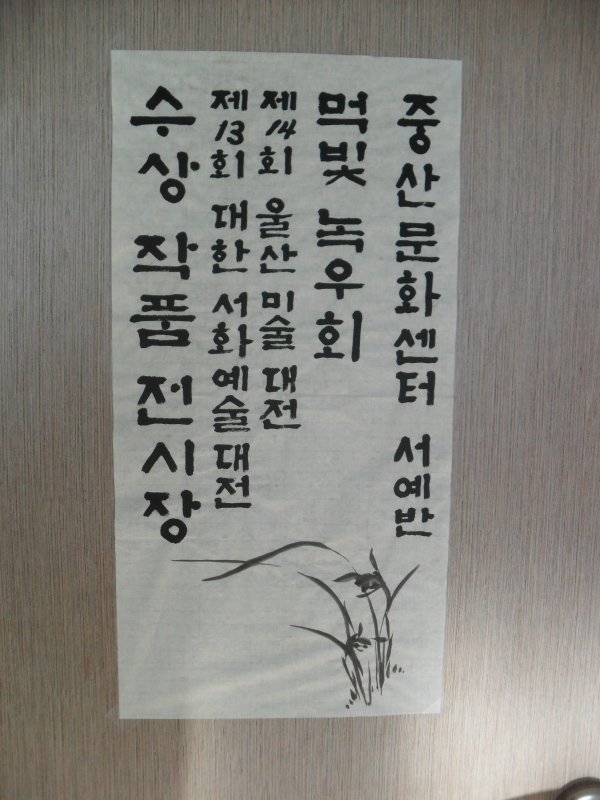 중산문화센터 서예반
먹빛 녹우회
제14회 울산 미술 대전
제13회 대한 서화예술대전
수상 작품 전시장